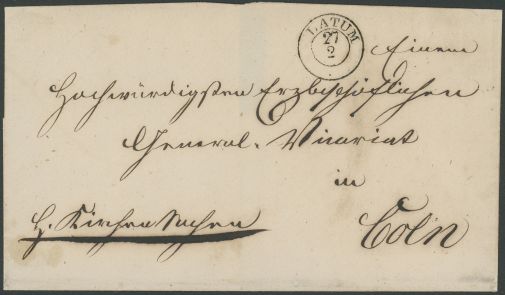 LATUM
27
2
Einem
Hochwürdigsten Erzbischöflichen
General-Vicariat
in
Cöln
H. Kirchen Sachen